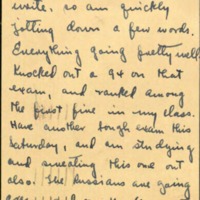 write, so am quickly
jotting down a few words.
Everything going pretty well.
Knocked out a 94 on that
exam, and ranked among
the first five in my class.
Have another tough exam this
Saturday, and am studying
and sweating this one out
also. The Russians are going